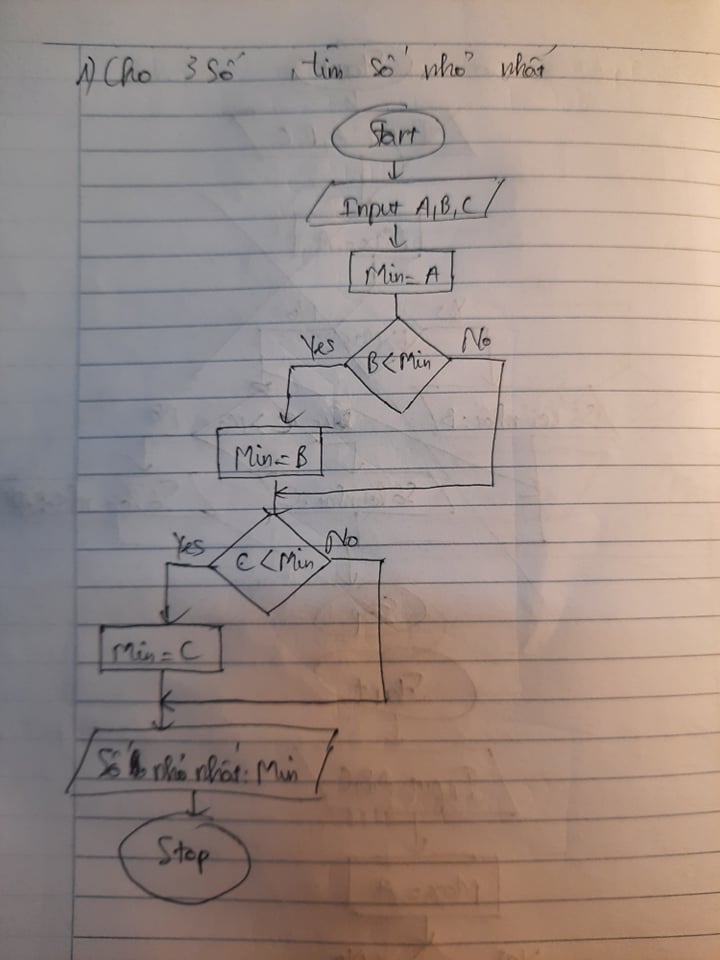 1) Cho 3 Số , tìm số nhỏ nhất
Start
Input A, B, C
Min = A
Yes
B < Min
No
Min = B
Yes
C < Min
No
Min = C
Số nhỏ nhất: Min
Stop